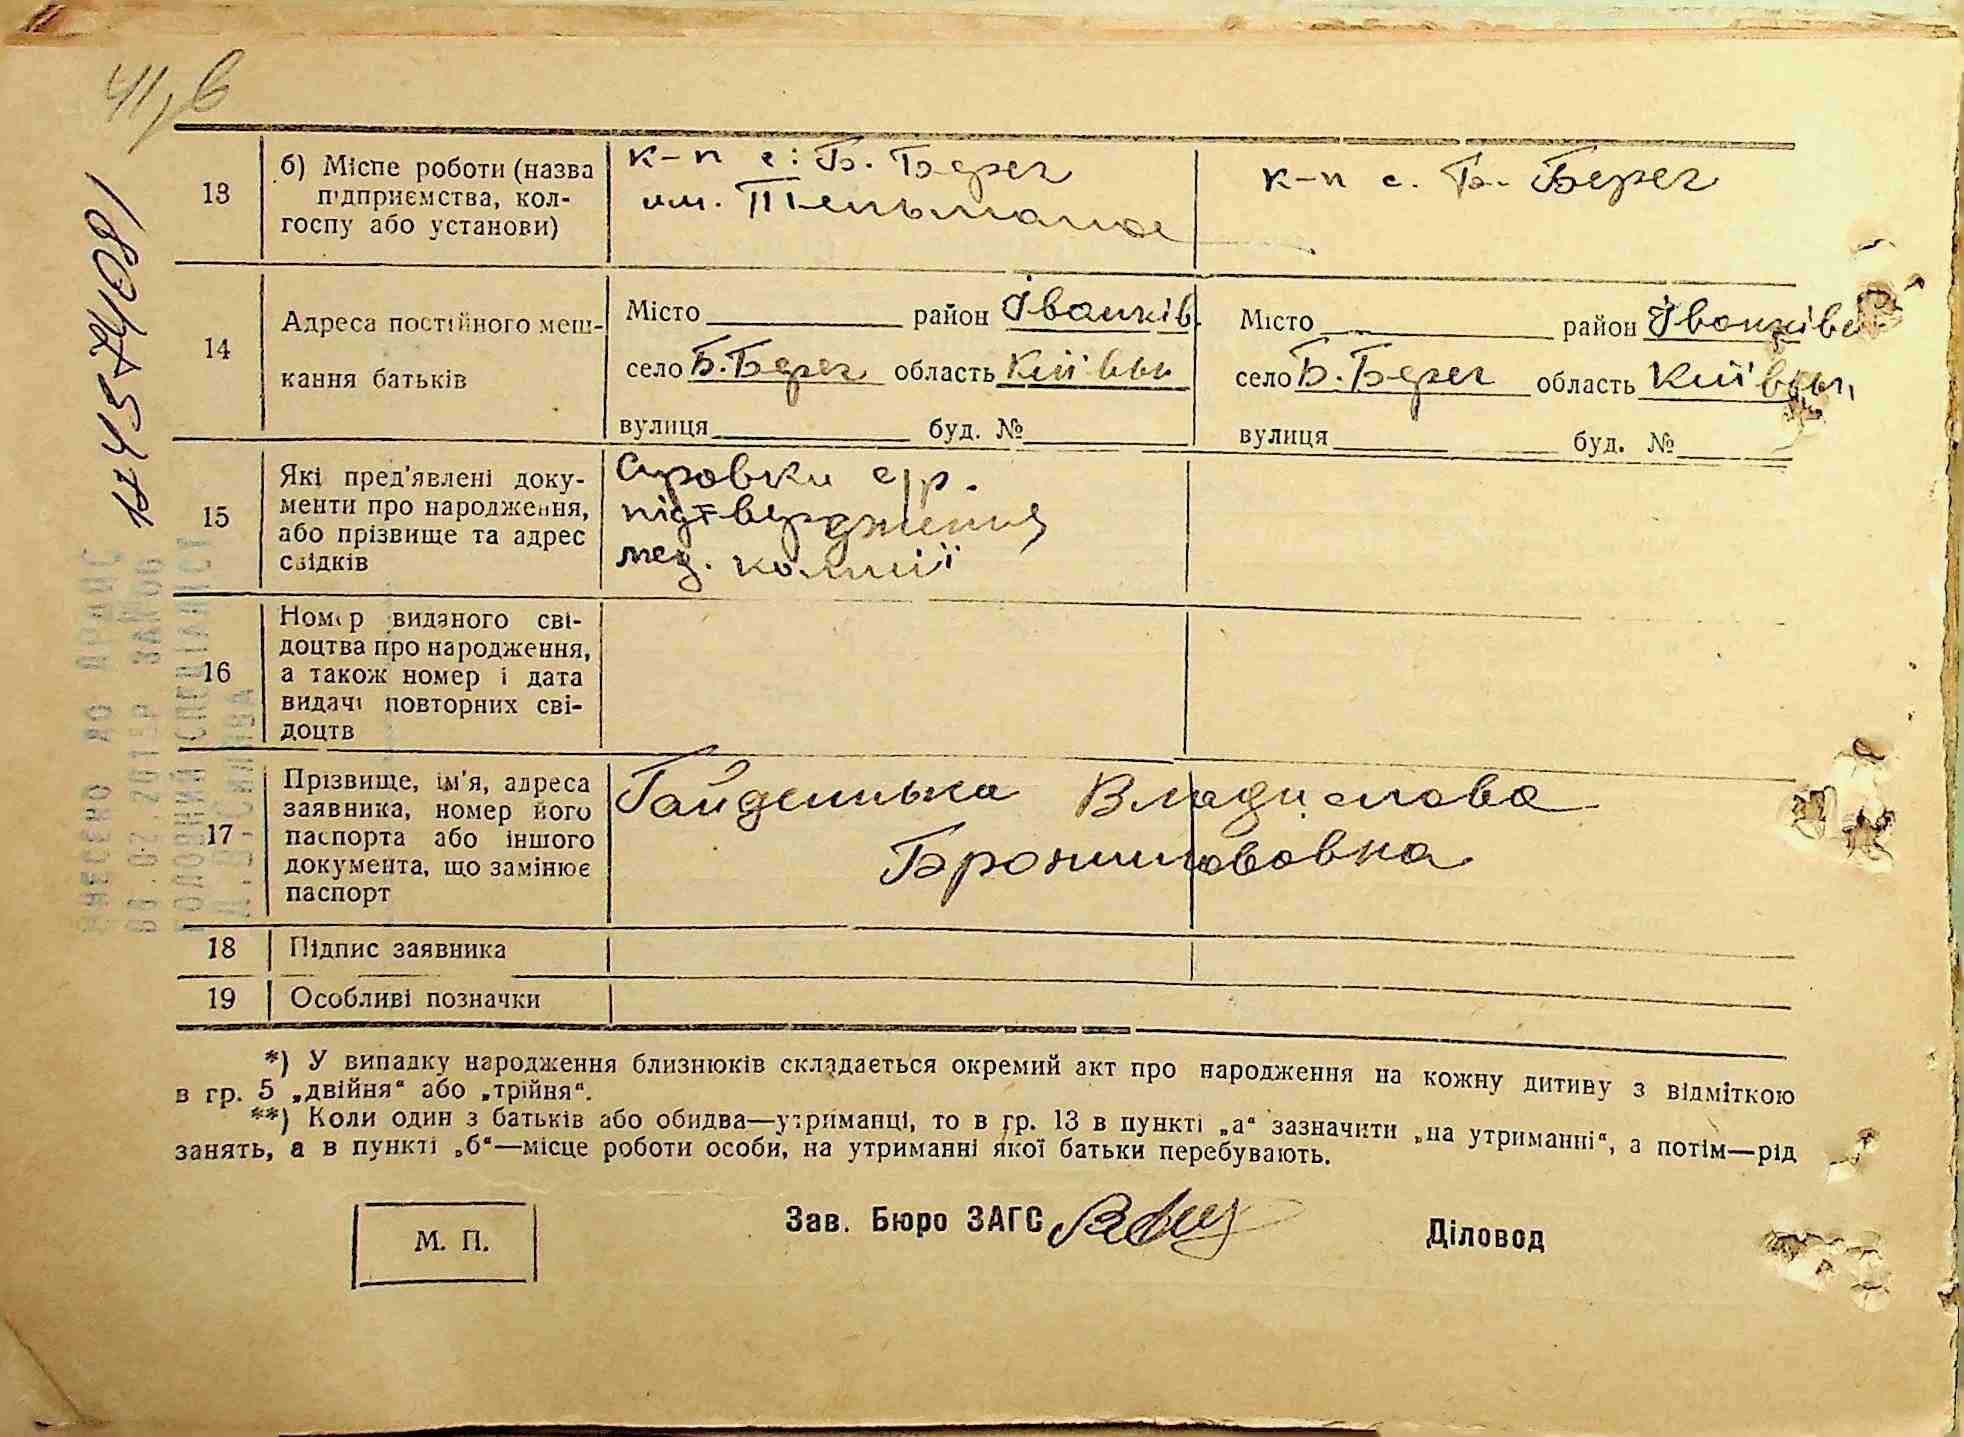 41, в
13
б) Місце роботи (назва
підприємства, кол-
госпу або установи)
к-п с. Б. Берег
им. Тельмана
к-п с. Б. Берег
14
Адреса постійного меш-
кання батьків
Місто район Іванків.
село Б. Берег область Київськ
вулиця буд. №
Місто район Іванківс
село Б. Берег область Київськ
вулиця буд. №
15
Які пред'явлені доку-
менти про народження,
або прізвище та адрес
свідків
Справки с/р.
підтвердження
мед. комісії
16
Номер виданого сві-
доцтва про народження,
а також номер і дата
видачі повторних сві-
доцтв
17
Прізвище, ім'я, адреса
заявника, номер його
паспорта або іншого
документа, що замінює
паспорт
Гайденька Владислава
Брониславовна
18 Підпис заявника
19 Особливі позначки
*) У випадку народження близнюків складається окремий акт про народження на кожну дитину з відміткою
в гр. 5 „двійня“ або „трійня“.
**) Коли один з батьків або обидва—утриманці, то в гр. 13 в пункті „а“ зазначити „на утриманні“, а потім—рід
занять, а в пункті „б“—місце роботи особи, на утриманні якої батьки перебувають.
М. П.
Зав. Бюро ЗАГС
Діловод
ВНЕСЕНО ДО ДРАЦС
ГОЛОВНИЙ СПЕЦІАЛІСТ